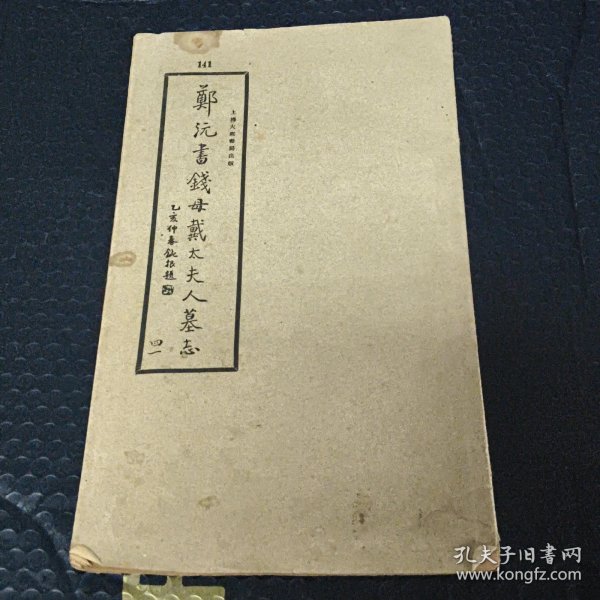 141
上海大眾書局出版
鄭沅書錢母戴太夫人墓志
四一
乙亥仲春
題
孔夫子旧书网
www.kongfz.com